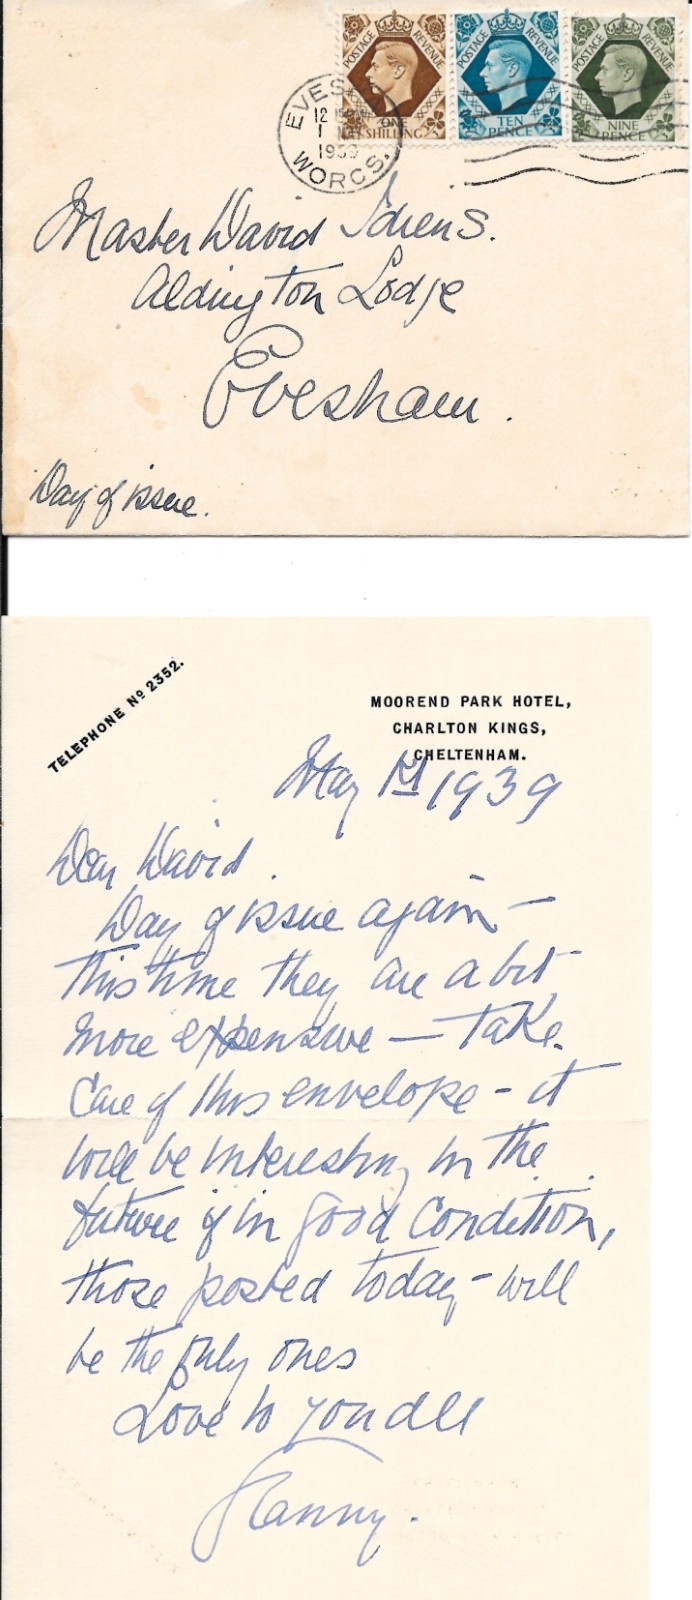 POSTAGE REVENUE
ONE SHILLING
POSTAGE REVENUE
TEN PENCE
POSTAGE REVENUE
NINE PENCE
EVESHAM
12
1 MAY
1939
WORCS.
Master David
Aldington Lodge
Evesham.
Day of issue.
TELEPHONE No 2352.
MOOREND PARK HOTEL,
CHARLTON KINGS,
CHELTENHAM.
May 1st 1939
Dear David.
Day of issue again —
This time they are a bit
more expensive — Take
Care of this envelope - it
will be interesting in the
future if in good Condition,
those posted today - will
be the only ones
Love to you all